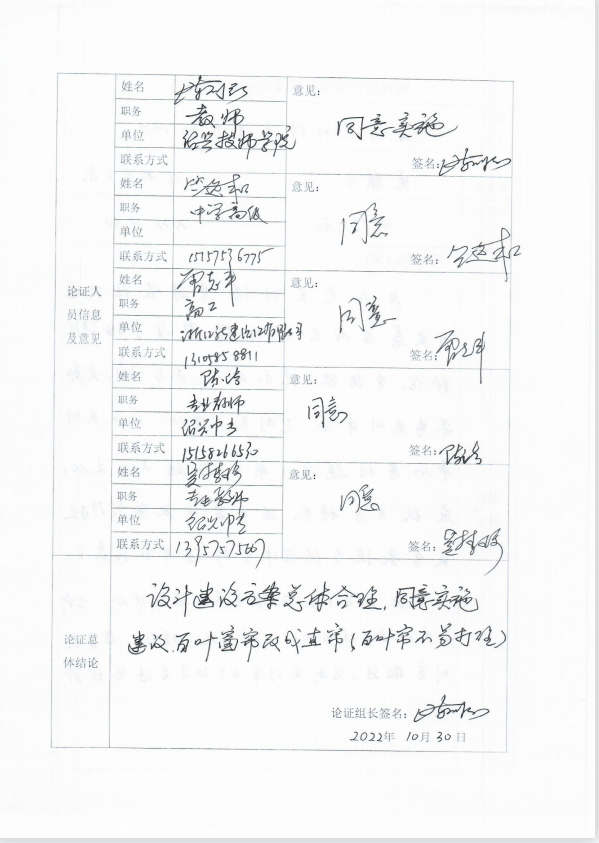 姓名
职务 教师
单位 绍兴技师学院
联系方式
意见：
同意实施
签名：
姓名
职务 中学高级
单位
联系方式 15157536775
意见：
同意
签名：
论证人
员信息
及意见
姓名
职务 高工
单位
联系方式
意见：
同意
签名：
姓名
职务 专业教师
单位 绍兴中专
联系方式 15158266530
意见：
同意
签名：
姓名
职务 专业教师
单位 绍兴中专
联系方式
意见：
同意
签名：
论证总
体结论
设计建设方案总体合理，同意实施
建议百叶窗帘改成直帘（百叶帘不易打理）
论证组长签名：
2022年 10月 30日